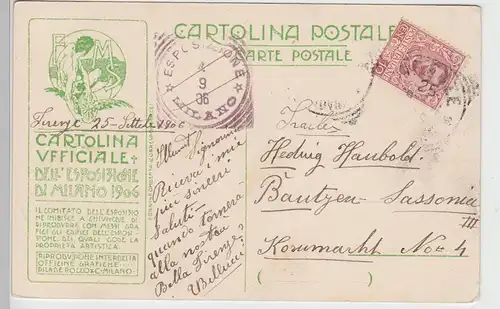 CARTOLINA POSTALE
CARTE POSTALE
E M S
ESPOSIZIONE
4
9
MILANO
Firenze 25 - Settebre 1906
CARTOLINA
VFFICIALE
DELL'ESPOSIZIONE
DI MILANO 1906
IL COMITATO DELL'ESPOSIZIO
NE INIBISCE A CHIVNQVE DI
RIPRODVRRE CON MEZZI GRA
FICI GLI EDIFICI DELL'ESPOSI
ZIONE DEI QVALI GODE LA
PROPRIETÀ ARTISTICA.
RIPRODVZIONE INTERDETTA
OFFICINE GRAFICHE
PILADE ROCCO & C. MILANO
Signorina
Riceva i miei
più sinceri
Saluti -
quando tornerà
alla nostra
Bella Firenze?
Bellucci
Hedwig Haubold.
Bautzen - Sassonia
III
Kornmarkt No 4